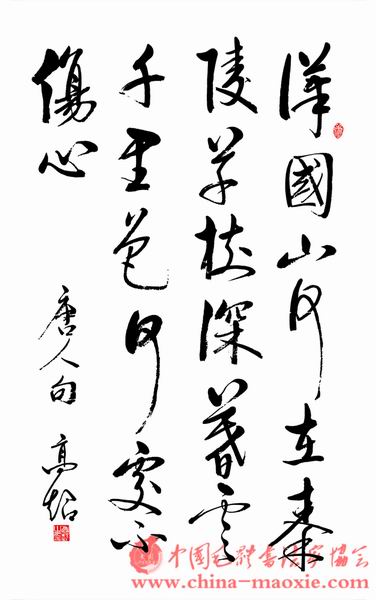 漢國山河在秦
陵草樹深暮雲
千里色何處不
傷心
唐人句 高
中国毛體書法家協会
www.china-maoxie.com